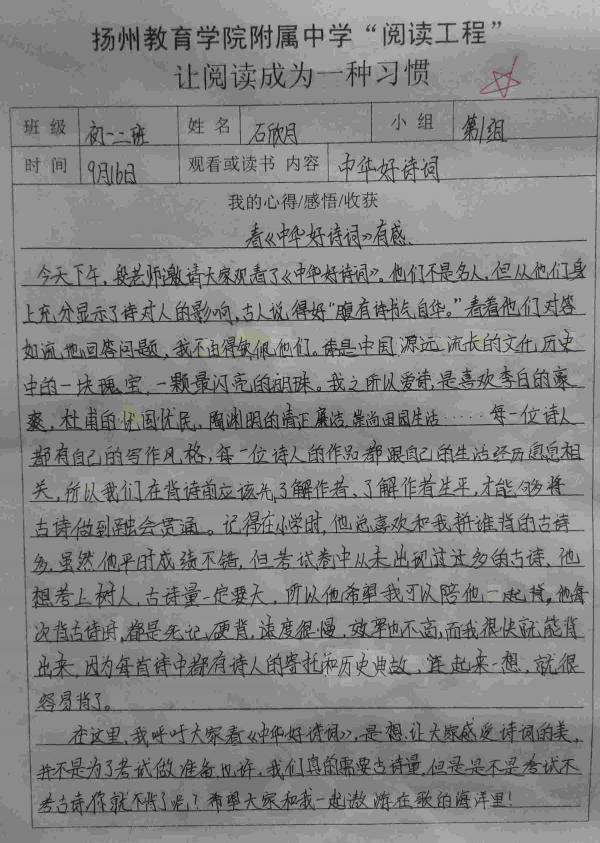 扬州教育学院附属中学“阅读工程”
让阅读成为一种习惯
班级 初一二班 姓名 石欣月 小组 第1组
时间 9月16日 观看或读书 内容 中华好诗词
我的心得/感悟/收获
看《中华好诗词》有感.
今天下午,殷老师邀请大家观看了《中华好诗词》。他们不是名人,但从他们身
上充分显示了诗对人的影响,古人说得好“腹有诗书气自华。”看着他们对答
如流地回答问题,我不由得钦佩他们。诗是中国源远流长的文化历史
中的一块瑰宝,一颗最闪亮的明珠。我之所以爱诗,是喜欢李白的豪
爽,杜甫的忧国忧民,陶渊明的清正廉洁,崇尚田园生活……每一位诗人
都有自己的写作风格,每一位诗人的作品都跟自己的生活经历息息相
关,所以我们在背诗前应该先了解作者、了解作者生平,才能够将
古诗做到融会贯通。记得在小学时,他总喜欢和我拼谁背的古诗
多,虽然他平时成绩不错,但考试卷中从未出现过过多的古诗,他
想考上树人,古诗量一定要大,所以他希望我可以陪他一起背。他每
次背古诗时,都是死记硬背,速度很慢,效率也不高,而我很快就能背
出来,因为每首诗中都有诗人的寄托和历史典故,连起来一想,就很
容易背了。
在这里,我呼吁大家看《中华好诗词》,是想让大家感受诗词的美,
并不是为了考试做准备,也许,我们真的需要古诗量,但是是不是考试不
考古诗,你就不背了呢?希望大家和我一起遨游在歌的海洋里!